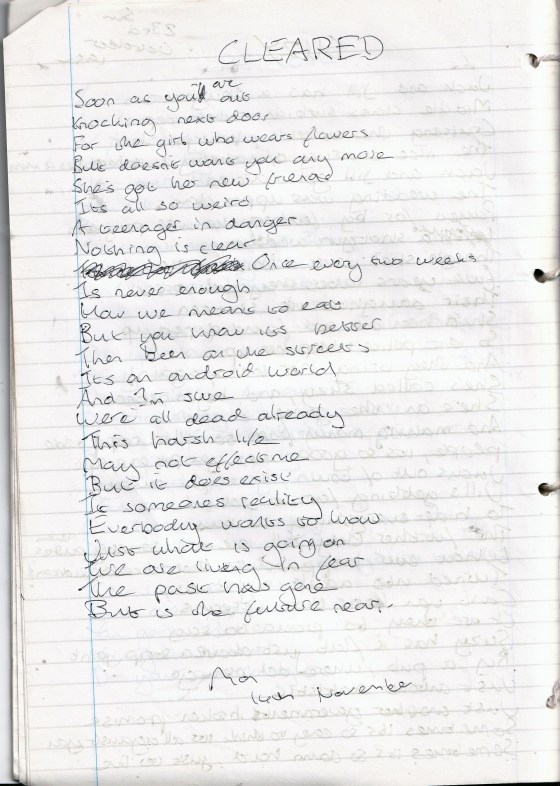 CLEARED
Soon as you are out
Knocking next door
For the girl who wears flowers
But doesn't want you any more
She's got her new friends
Its all so weird
A teenager in danger
Nothing is clear
Once every two weeks
Is never enough
How we means to eat
But you know its better
Then been on the streets
Its an android world
And I'm sure
We're all dead already
This harsh life
May not effect me
But it does exist
Is someones reality
Everbody wants to know
Just what is going on
We are living in fear
The past has gone
But is the future near.
Mon
14th November